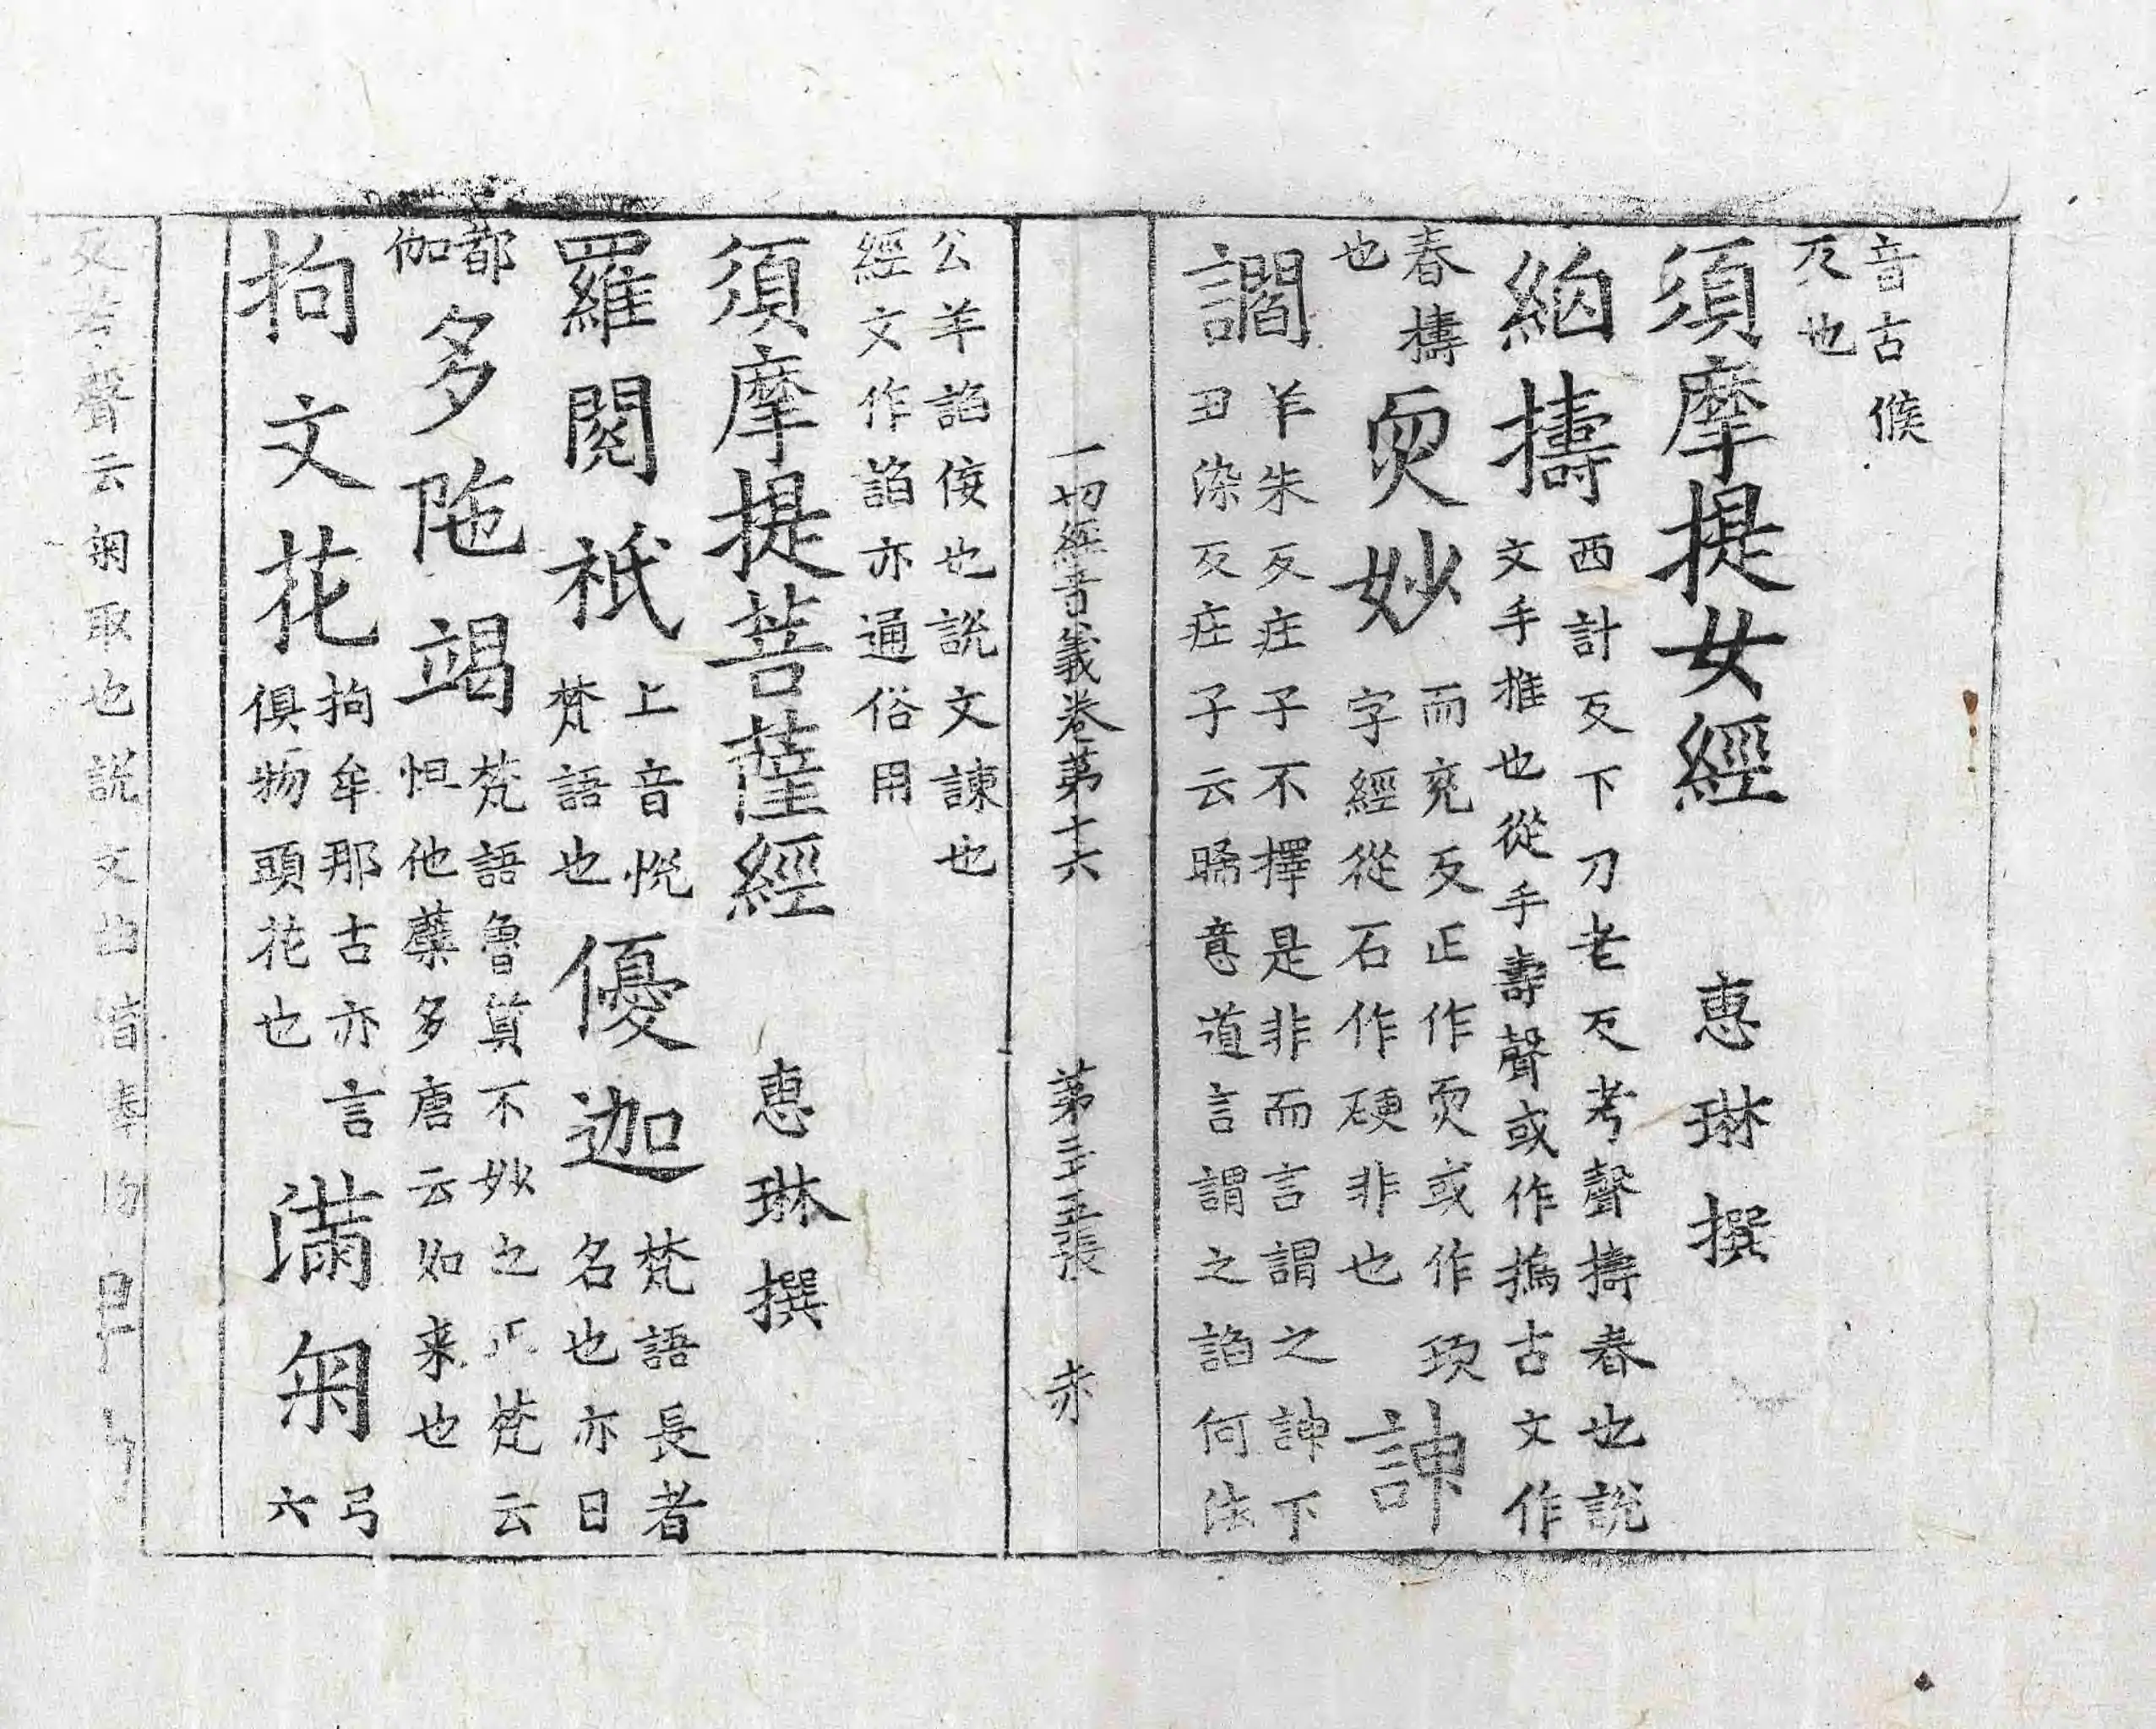 音古候
反也
須摩提女經　惠琳撰
緰擣西計反下刀老反考聲擣舂也說
文手推也從手壽聲或作搗古文作
舂擣
也
耎妙而兗反正作耎或作㼱
字經從石作硬非也
諂
讇羊朱反莊子不擇是非而言謂之諛下
丑染反莊子云睎意道言謂之諂何法
一切經音義卷第十六　第三十五張　赤
公羊諂佞也說文諫也
經文作諂亦通俗用
須摩提菩薩經　惠琳撰
羅閱祇上音悅
梵語也
優迦梵語長者
名也亦曰
都
伽
多陁竭梵語魯質不妙之正梵云
怛他蘖多唐云如来也
拘文花拘牟那古亦言
俱物頭花也
滿匊弓
六
反考聲云匊取也說文